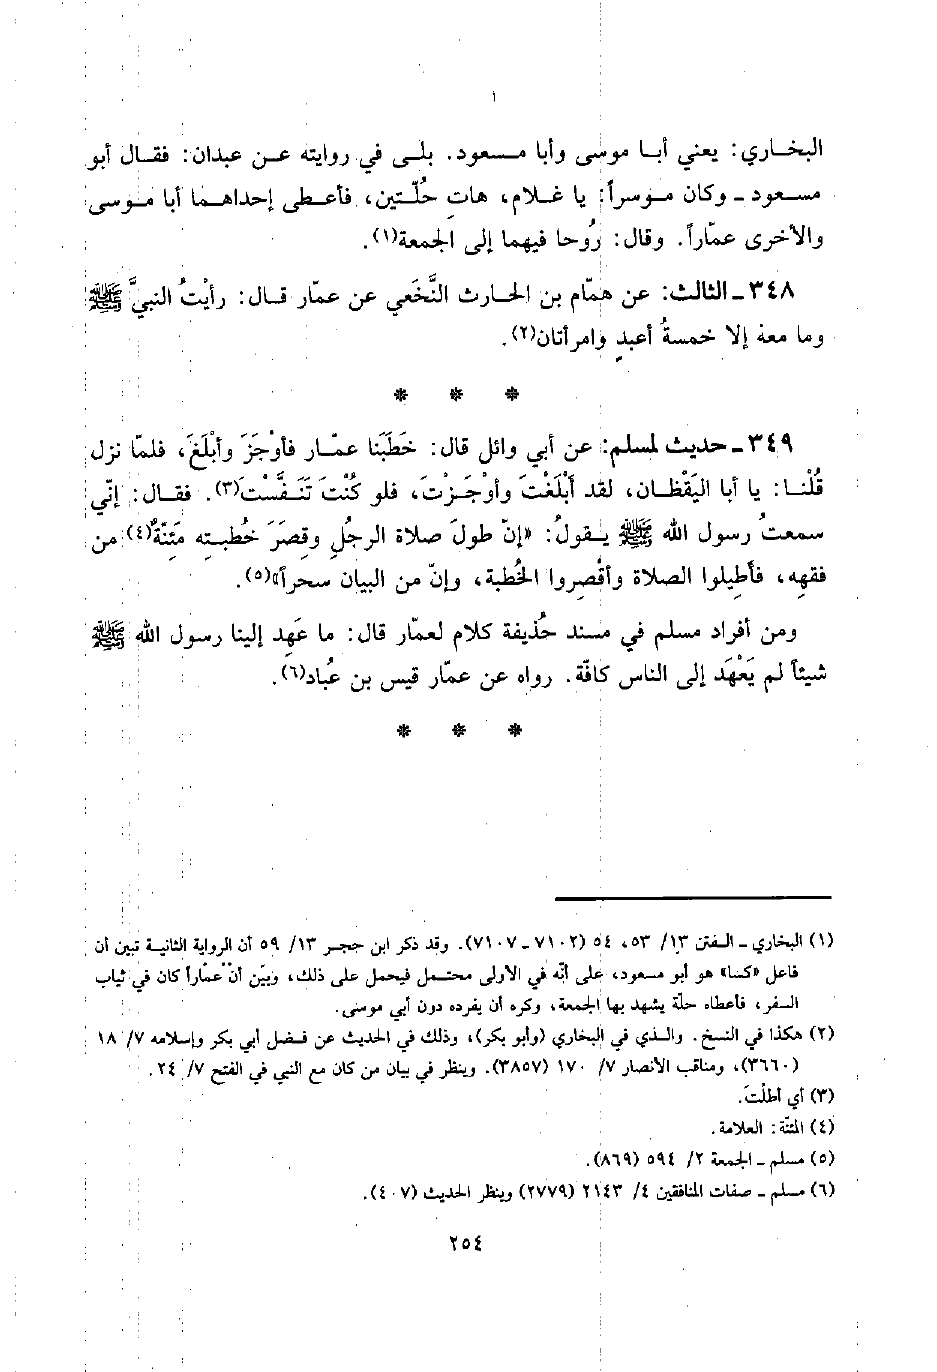 ١
البخـاري: يعني أبـا موسى وأبا مـسعود. بلـى في روايته عـن عبدان: فقـال أبو
مسـعود ـ وكان مـوسراً: يا غـلام، هاتِ حُلّـتين، فأعـطى إحداهـما أبا مـوسى
والأخرى عمّاراً. وقال: رُوحا فيهما إلى الجمعة(١).
٣٤٨ـ الثالث: عن همّام بن الحارث النَّخَعي عن عمّار قـال: رأيْتُ النبيَّ ﷺ
وما معهُ إلا خمسةُ أعبدٍ وامرأتان(٢).
* * *
٣٤٩ـ حديث لمسلم: عن أبي وائل قال: خَطَبَنا عمّـار فأوْجَزَ وأبْلَغَ، فلمّا نزل
قُلْنـا: يا أبا اليَقْظـان، لقد أبْلَغْتَ وأوْجَـزْتَ، فلو كُنْتَ تَنَـفَّسْتَ(٣). فقـال: إنّي
سمعتُ رسول الله ﷺ يـقولُ: «إنّ طولَ صلاة الرجُلِ وقِصَرَ خُطبتِه مَئِنّةٌ(٤) من
فقهِه، فأطِيلوا الصلاة وأقْصِروا الخُطبة، وإنّ من البيان سحراً»(٥).
ومن أفراد مسلم في مسند حُذيفة كلام لعمّار قال: ما عَهِد إلينا رسول الله ﷺ
شيئاً لم يَعْهَد إلى الناس كافّة. رواه عن عمّار قيس بن عُباد(٦).
* * *
(١) البخاري ـ الـفتن ١٣/ ٥٣، ٥٤ (٧١٠٢ ـ ٧١٠٧). وقد ذكر ابن حجر ١٣/ ٥٩ أن الرواية الثانيـة تبين أن
فاعل «كسا» هو أبو مسعود، على أنّه في الأولى محتـمل فيحمل على ذلك، وبيّن أنّ عمّاراً كان في ثياب
السفر، فأعطاه حلّة يشهد بها الجمعة، وكره أن يفرده دون أبي موسى.
(٢) هكذا في النسخ. والـذي في البخاري (وأبو بكر)، وذلك في الحديث عن فـضل أبي بكر وإسلامه ٧/ ١٨
(٣٦٦٠)، ومناقب الأنصار ٧/ ١٧٠ (٣٨٥٧). وينظر في بيان من كان مع النبي في الفتح ٧/ ٢٤.
(٣) أي أطلْتَ.
(٤) المئنّة: العلامة.
(٥) مسلم ـ الجمعة ٢/ ٥٩٤ (٨٦٩).
(٦) مسلم ـ صفات المنافقين ٤/ ٢١٤٣ (٢٧٧٩) وينظر الحديث (٤٠٧).
٢٥٤